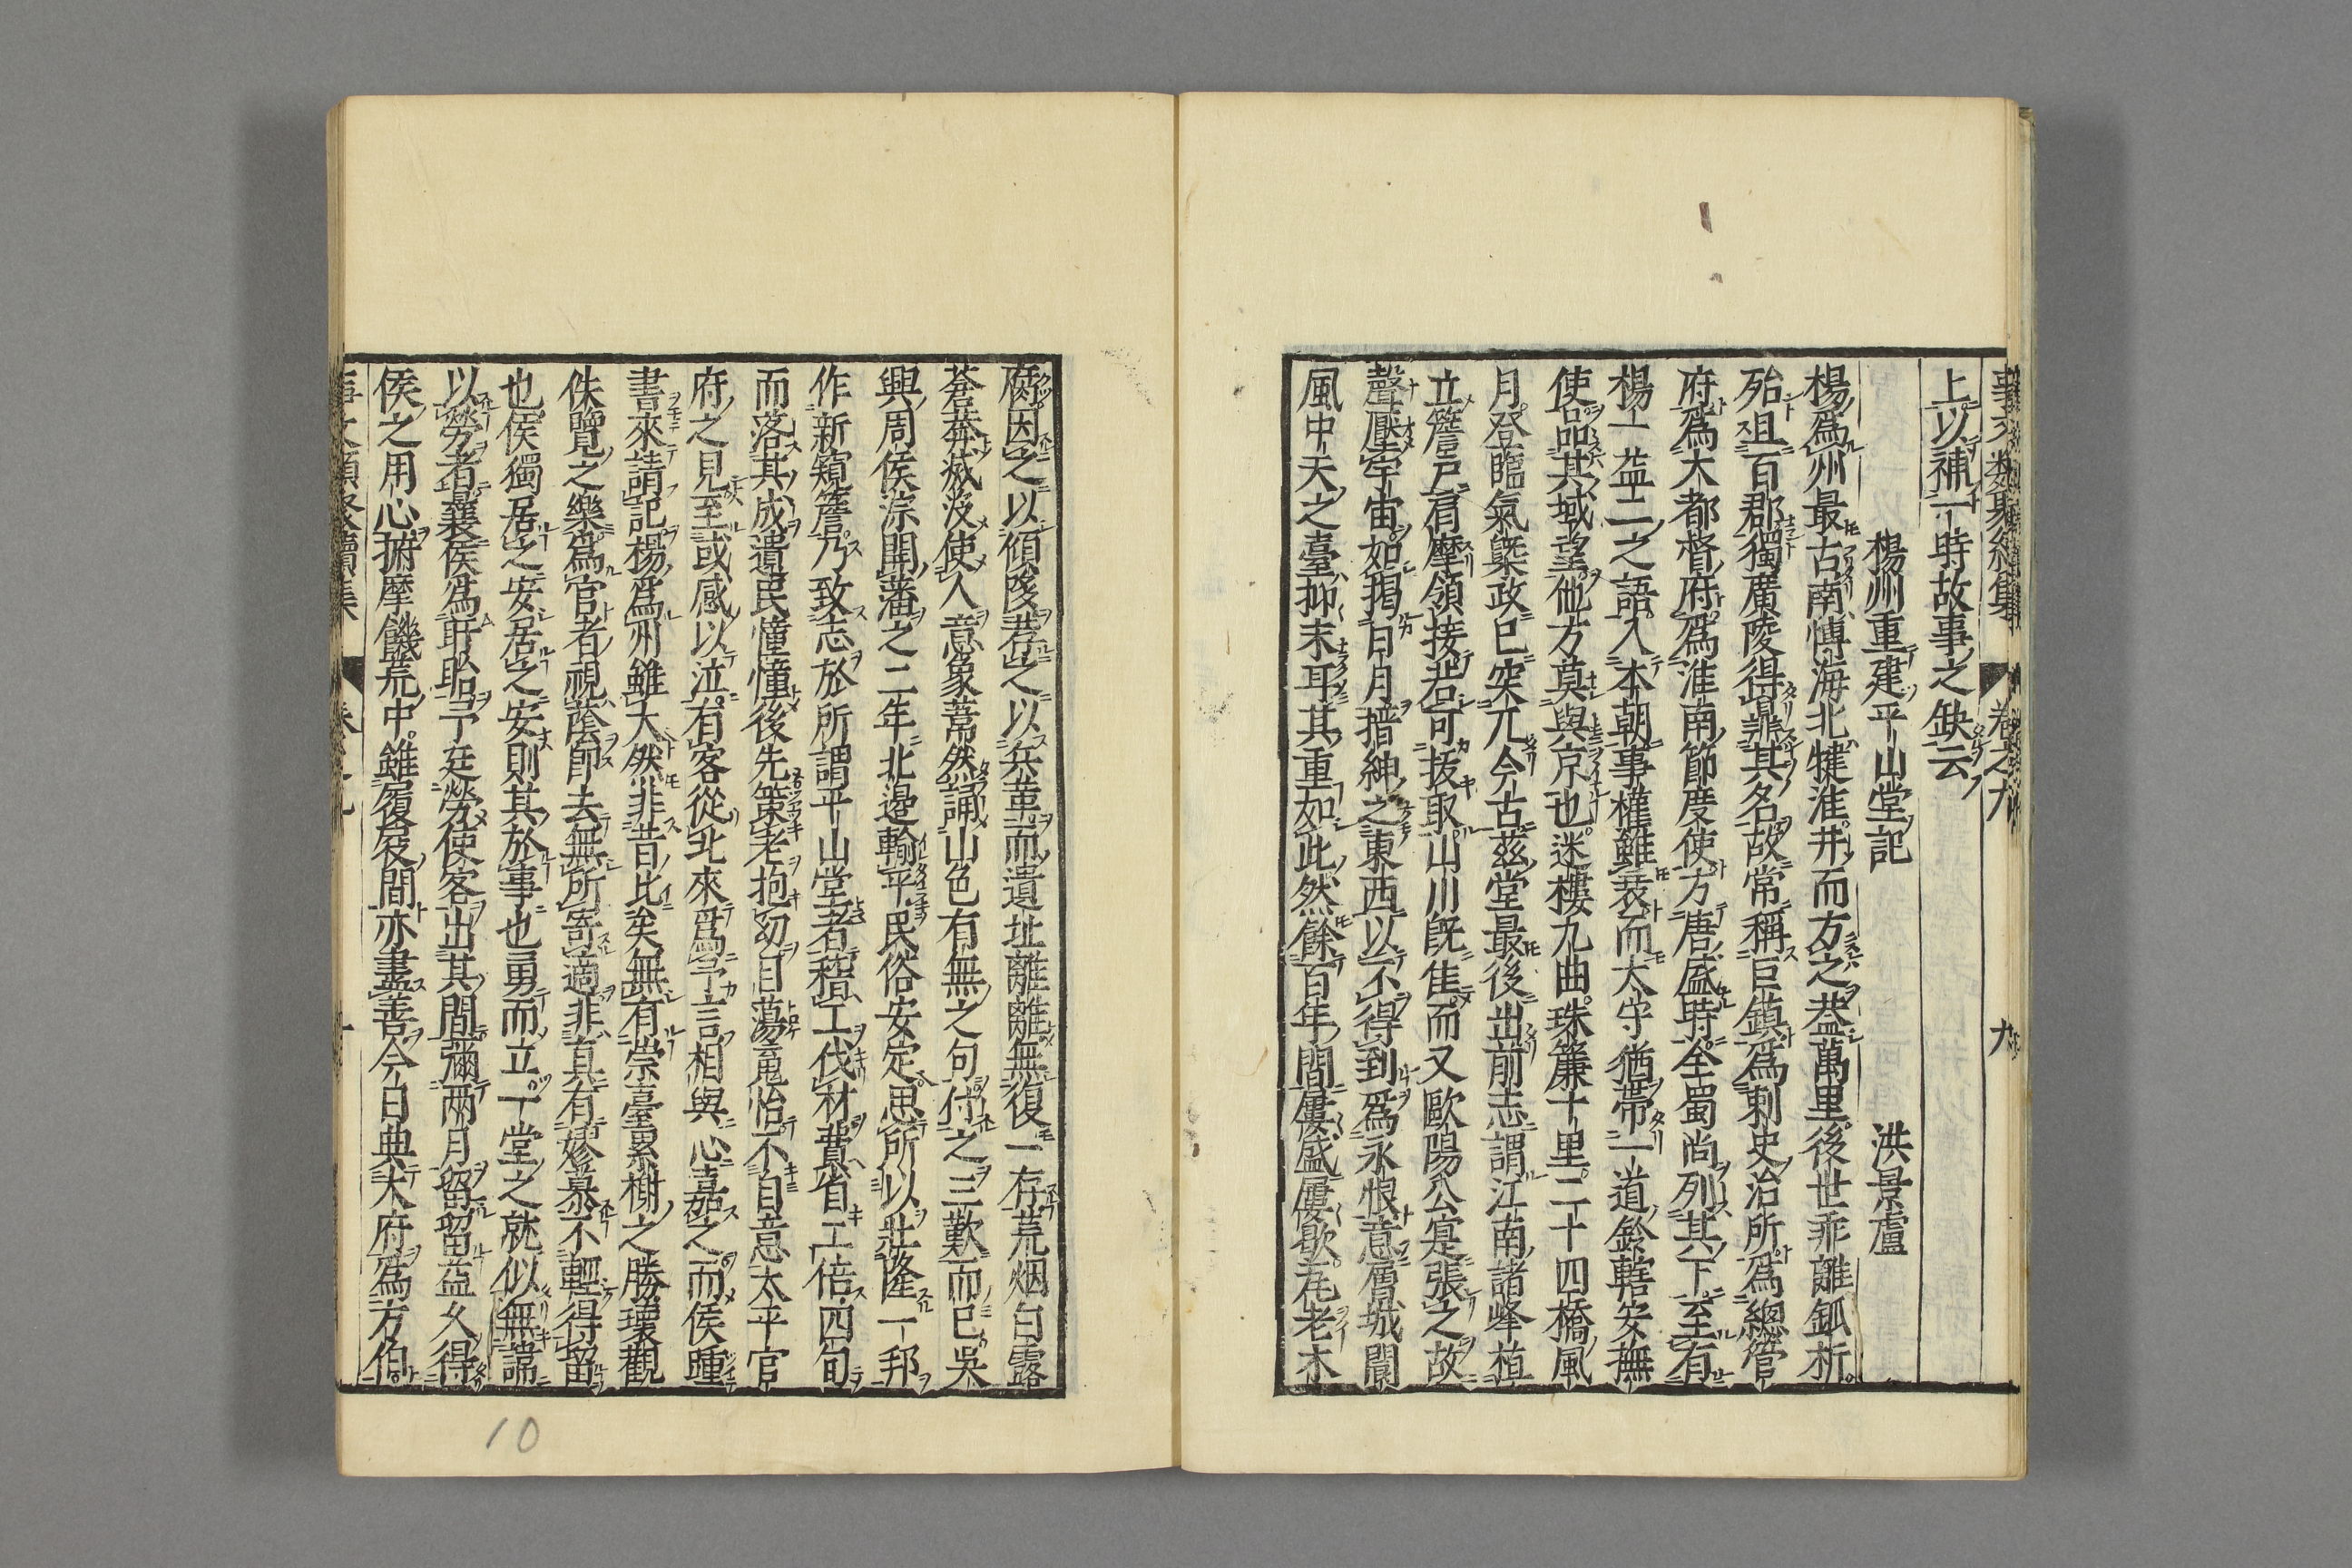 事文類聚續集 卷之九 九
上以補一時故事之缺云
楊州重建平山堂記 洪景盧
楊爲州最古南慱海北揵淮井而方之葢萬里後世乖離鈲析
殆且百郡獨廣陵得鼎其名故常稱巨鎮爲刺史治所爲總管
府爲大都督府爲淮南節度使方唐盛時全蜀尚列其下至有
楊一益二之語入本朝事權雖衰而太守猶帶一道鈴轄安撫
使品其域望他方莫與京也迷樓九曲珠簾十里二十四橋風
月登臨氣槩政巳突兀今古兹堂最後出前志謂江南諸峰植
立簷戸肩摩領接若可㧞取山川既隹而又歐陽公寔張之故
聲壓宇宙如掲日月搢紳之東西以不得到爲永恨意層城閬
風中天之臺抑末耳其重如此然餘百年間屢盛屢歇瓦老木
腐因之以傾陊若之以兵菫而遺址離離無復一存荒烟白露
蒼莽滅沒使人意象蕭然誦山色有無之句付之三歎而巳吳
興周侯淙開藩之二年北邉輸平民俗安定思所以壯隆一邦
作新䆗簷乃致志於所謂平山堂者稽工伐材費省工倍四旬
而落其成遺民憧憧後先策老抱幼目蕩竃怡不自意太平官
府之見至或感以泣有客從北來爲予言相與心嘉之而侯踵
書來請記楊爲州雖大然非昔比矣無有崇臺累榭之勝瓌觀
佚覽之樂爲官者視蔭卽去無所寄適非真有嫪慕不輕得留
也侯獨居之安居之安則其於事也勇而立一堂之就似無諱
以勞者曩侯爲盱眙予廷勞使客出其間彌兩月留留益久得
侯之用心㨌摩饑荒中雖履屐間亦盡善今日典大府爲方伯
事文類聚續集 卷之九 十
10